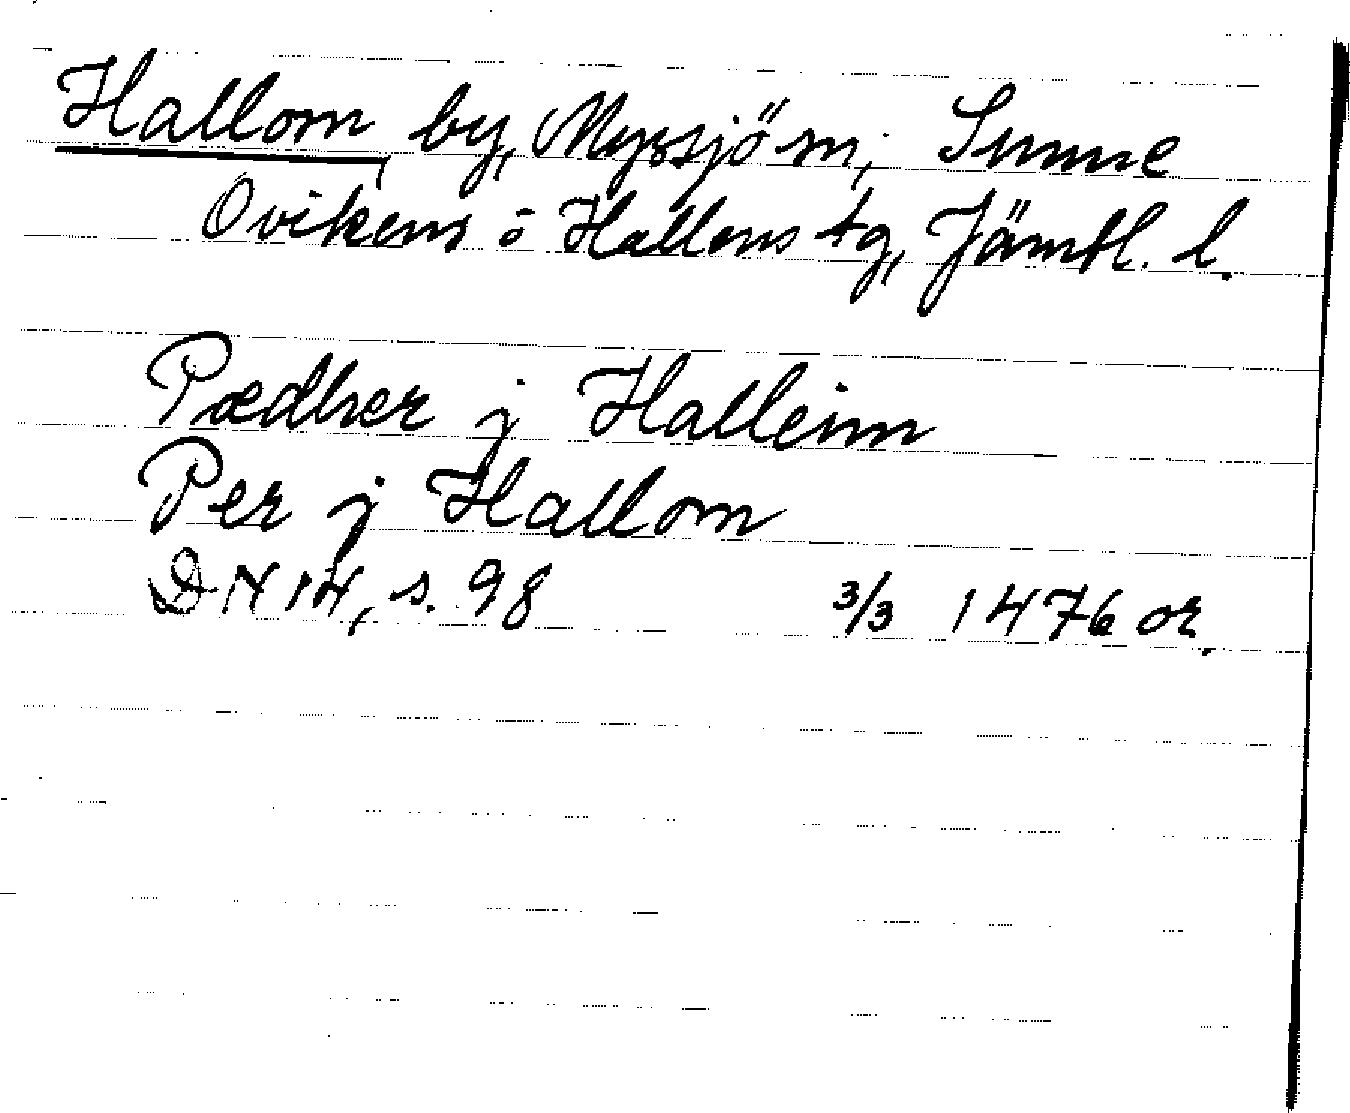 Hallom, by, Myssjö sn, Sunne
Ovikens o Hallens tg, Jämtl. l.
Pædher j Halleim
Per j Hallom
DN 14, s. 98 3/3 1476 or.